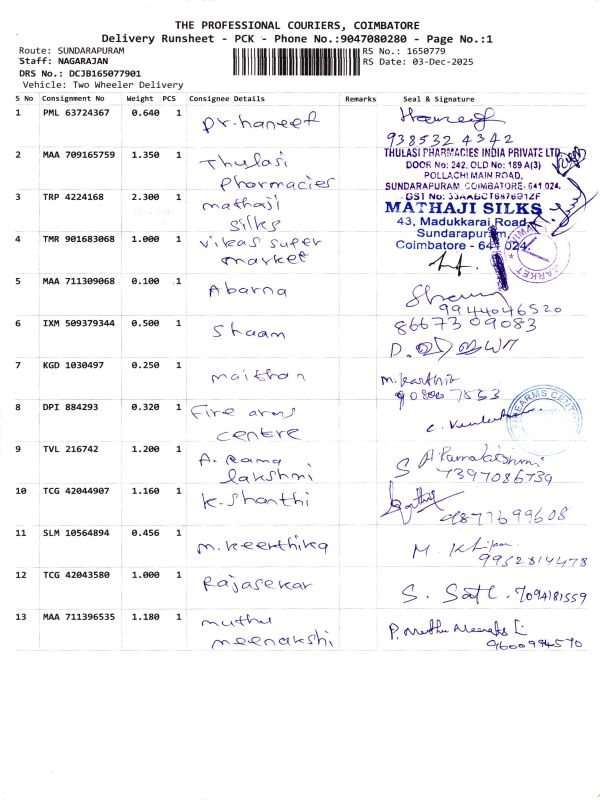 THE PROFESSIONAL COURIERS, COIMBATORE
Delivery Runsheet - PCK - Phone No.:9047080280 - Page No.:1
Route: SUNDARAPURAM
RS No.: 1650779
Staff: NAGARAJAN
RS Date: 03-Dec-2025
DRS No.: DCJB165077901
Vehicle: Two Wheeler Delivery
S No Consignment No Weight PCS Consignee Details Remarks Seal & Signature
1 PML 63724367 0.640 1 Dr.haneef
9385324342
2 MAA 709165759 1.350 1 Thulasi
pharmacies
THULASI PHARMACIES INDIA PRIVATE LTD
DOOR No: 242, OLD No: 189 A(3)
POLLACHI MAIN ROAD,
SUNDARAPURAM, COIMBATORE- 641 024.
3 TRP 4224168 2.300 1 mathaji
silks
MATHAJI SILKS
43, Madukkarai Road,
Sundarapuram
Coimbatore - 641 024.
4 TMR 901683068 1.000 1 vikas super
market
MARKET
5 MAA 711309068 0.100 1 Abarna
9944046520
6 IXM 509379344 0.500 1 Shaam
8667309083
7 KGD 1030497 0.250 1 maithan
m.karthik
8 DPI 884293 0.320 1 Fire arms
centre
9 TVL 216742 1.200 1 A. Rama
lakshmi
7397086739
10 TCG 42044907 1.160 1 K. Shanthi
9877699608
11 SLM 10564894 0.456 1 m. keerthika
9952814478
12 TCG 42043580 1.000 1 Rajasekar
7094181559
13 MAA 711396535 1.180 1 muthu
meenakshi
9600994570